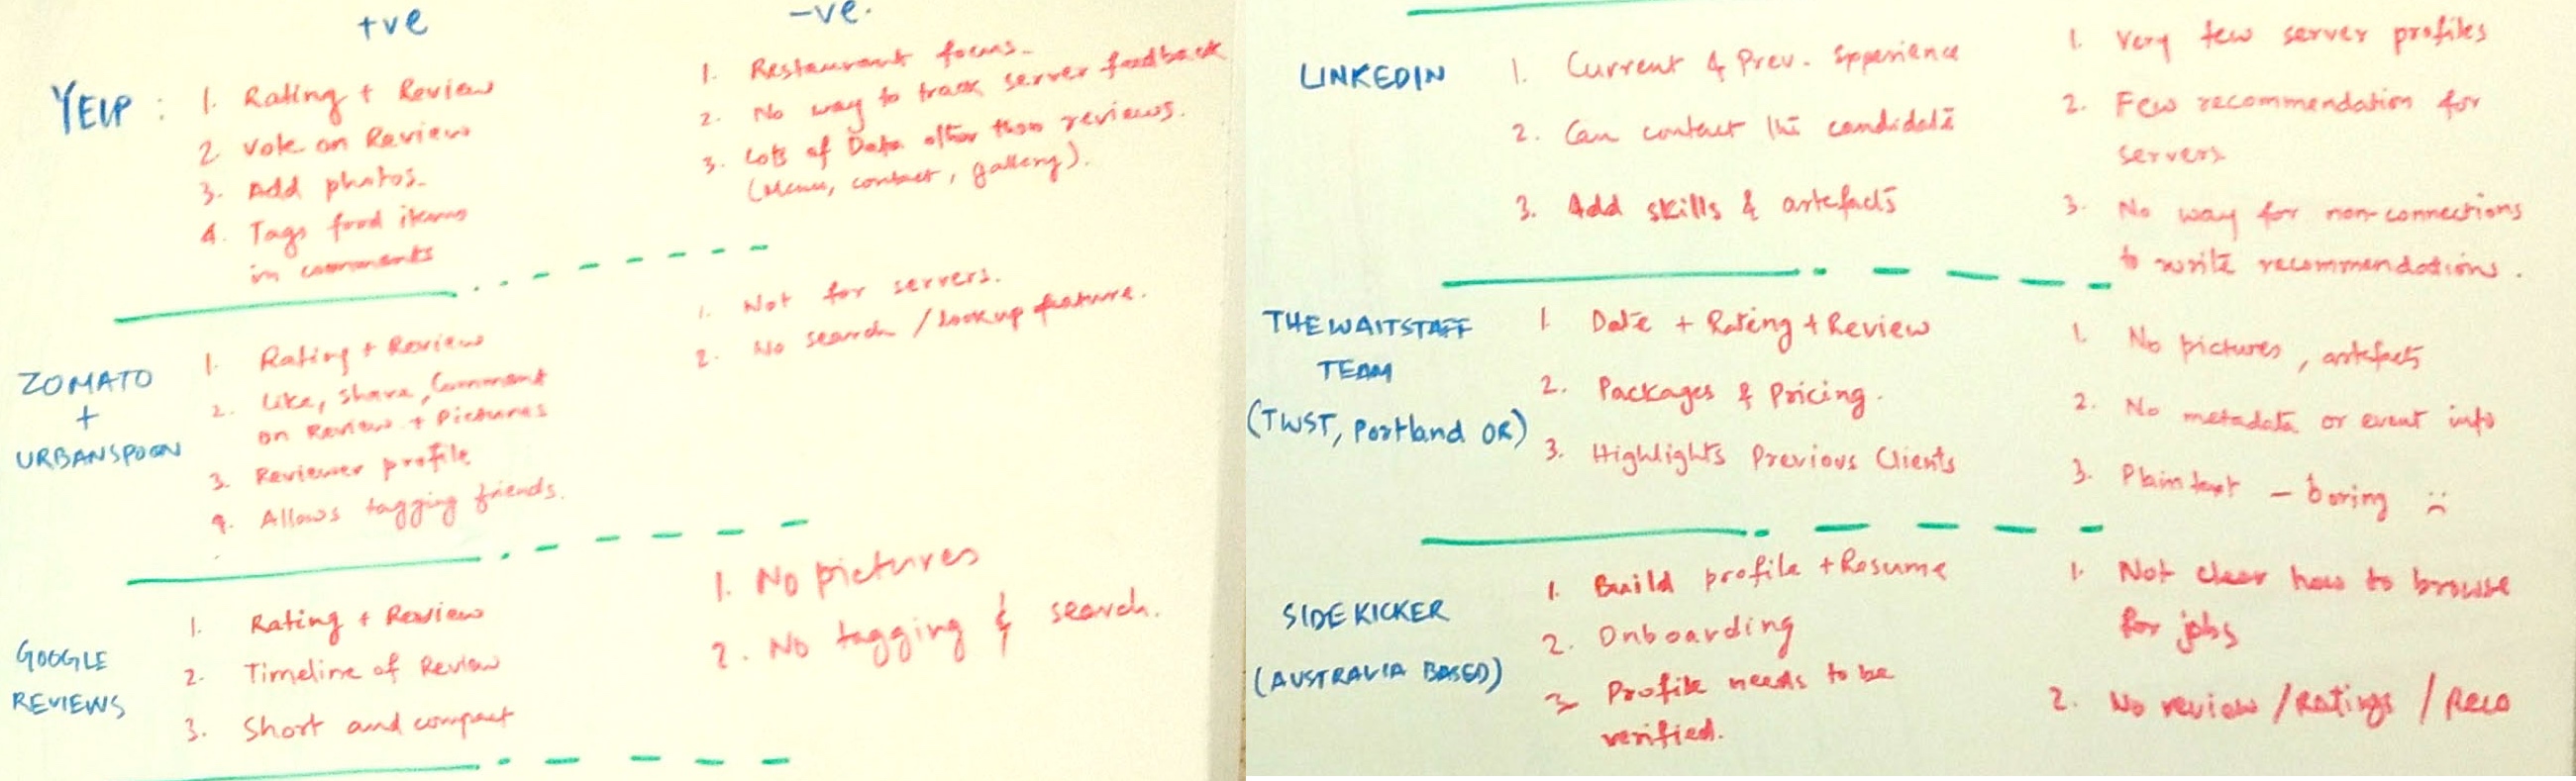 +ve
-ve.
YELP :
1. Rating + Review
2. Vote on Review
3. Add photos.
4. Tags food items
in comments
1. Restaurant focus.
2. No way to track server feedback
3. Lots of Data other than reviews.
(Menu, contact, gallery).
ZOMATO
+
URBANSPOON
1. Rating + Review
2. Like, Share, Comment
on Review + Pictures
3. Reviewer profile
4. Allows tagging friends.
1. Not for servers.
2. No search / lookup feature.
GOOGLE
REVIEWS
1. Rating + Review
2. Timeline of Review
3. Short and compact
1. No pictures
2. No tagging & search.
LINKEDIN
1. Current & Prev. Experience
2. Can contact the candidate
3. Add skills & artefacts
1. Very few server profiles
2. Few recommendation for
servers
3. No way for non-connections
to write recommendations.
THE WAITSTAFF
TEAM
(TWST, Portland OR)
1. Date + Rating + Review
2. Packages & Pricing.
3. Highlights Previous Clients
1. No pictures, artefacts
2. No metadata or event info
3. Plain text - boring :(
SIDEKICKER
(AUSTRALIA BASED)
1. Build profile + Resume
2. Onboarding
3. Profile needs to be
verified.
1. Not clear how to browse
for jobs
2. No review / Ratings / Reco